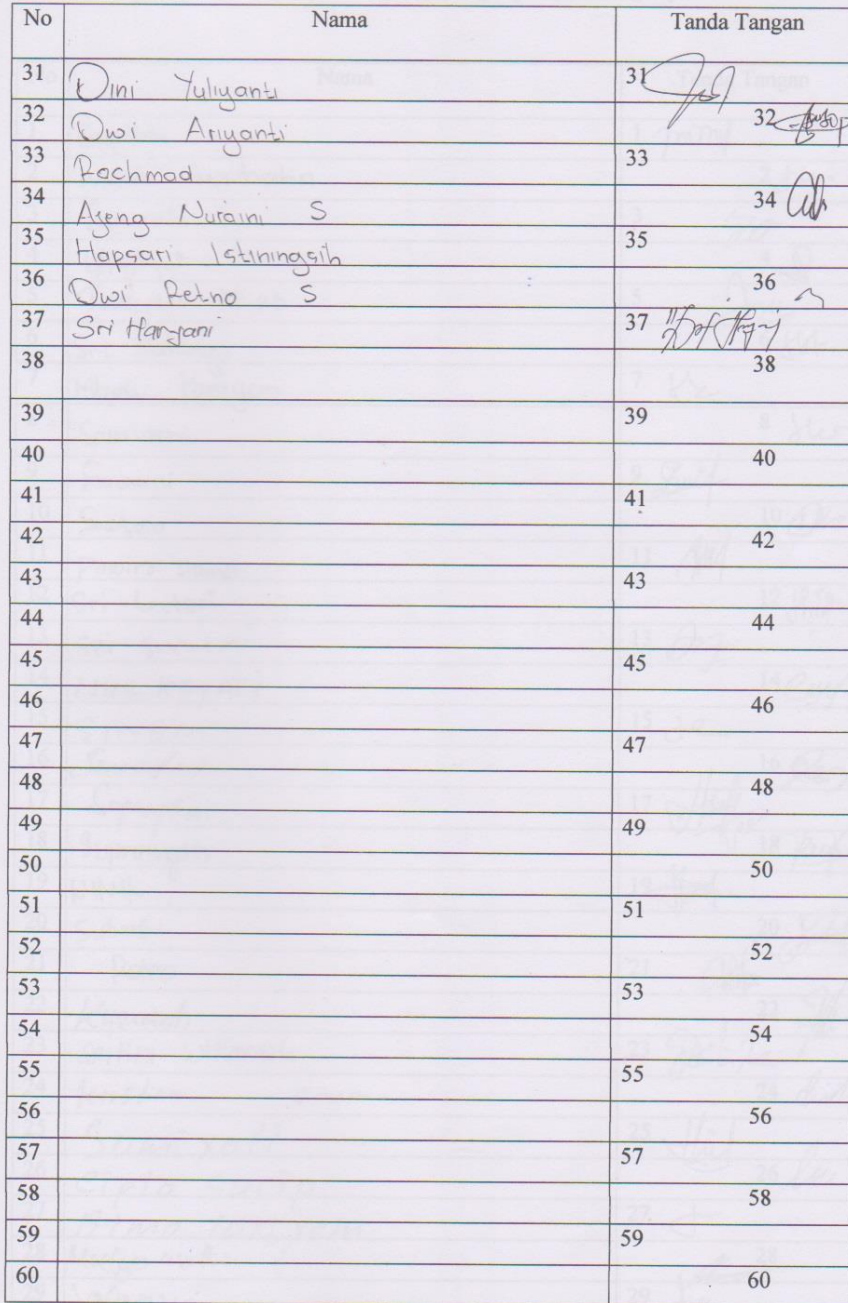 No Nama Tanda Tangan
31 Dini Yuliyanti 31
32 Dwi Ariyanti 32
33 Rachmad 33
34 Ajeng Nuraini S 34
35 Hapsari Istiningsih 35
36 Dwi Retno S 36
37 Sri Haryani 37
38 38
39 39
40 40
41 41
42 42
43 43
44 44
45 45
46 46
47 47
48 48
49 49
50 50
51 51
52 52
53 53
54 54
55 55
56 56
57 57
58 58
59 59
60 60